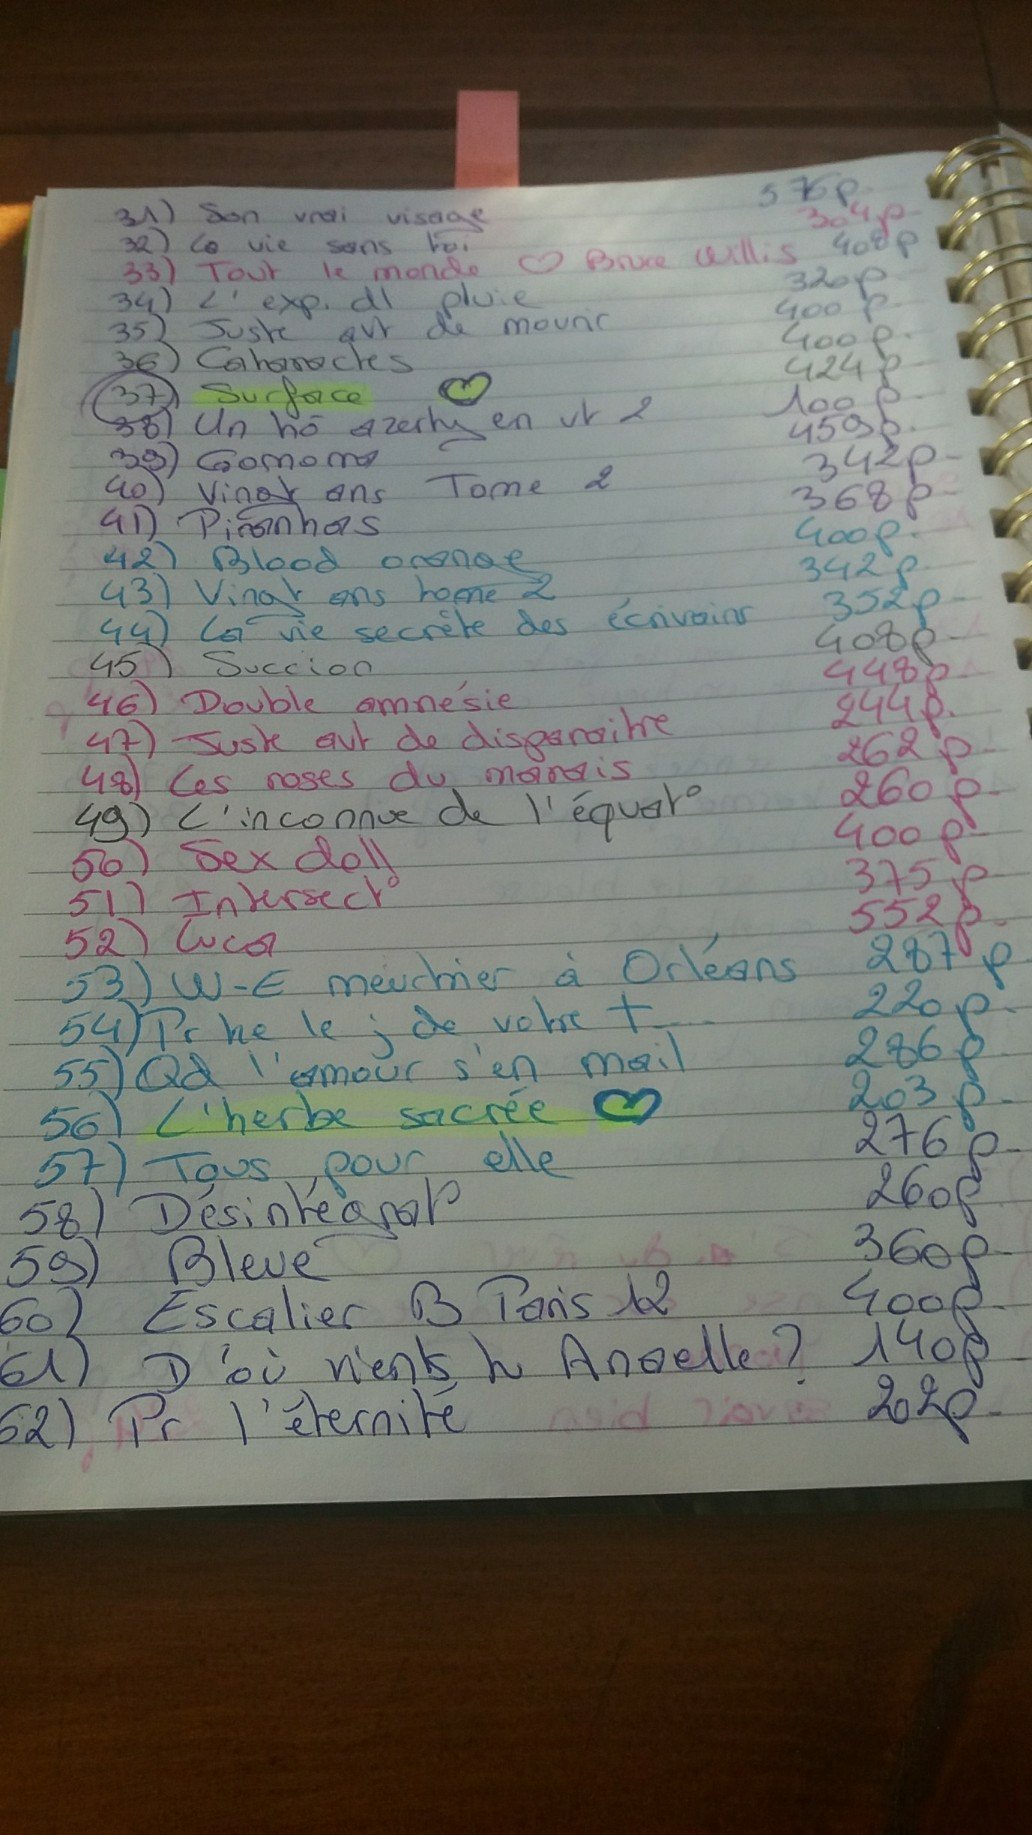 31) Son vrai visage 576p.
32) La vie sans toi 304p.
33) Tout le monde ♡ Bruce Willis 408p
34) L'exp. dl pluie 320p.
35) Juste avt de mourir 400p.
36) Cataractes 400p.
37) Surface ♡ 424p
38) Un hô azerty en vt 2 100p.
39) Gomorra 459p.
40) Vingt ans Tome 2 342p.
41) Piranhas 368p.
42) Blood orange 400p.
43) Vingt ans tome 2 342p.
44) La vie secrète des écrivains 352p.
45) Succion 408p.
46) Double amnésie 448p.
47) Juste avt de disparaitre 244p.
48) Les roses du marais 262p.
49) L'inconnue de l'équat° 260p.
50) Sex doll 400p
51) Intersect° 375p
52) Luca 552p.
53) W-E meurtrier à Orléans 287p
54) Pr he le j de votre t... 220p.
55) Qd l'amour s'en mail 286p
56) L'herbe sacrée ♡ 203p.
57) Tous pour elle 276p.
58) Désintégrat° 260p
59) Bleue 360p
60) Escalier B Paris 12 400p.
61) D'où viens tu Angelle? 140p
62) Pr l'éternité 202p.